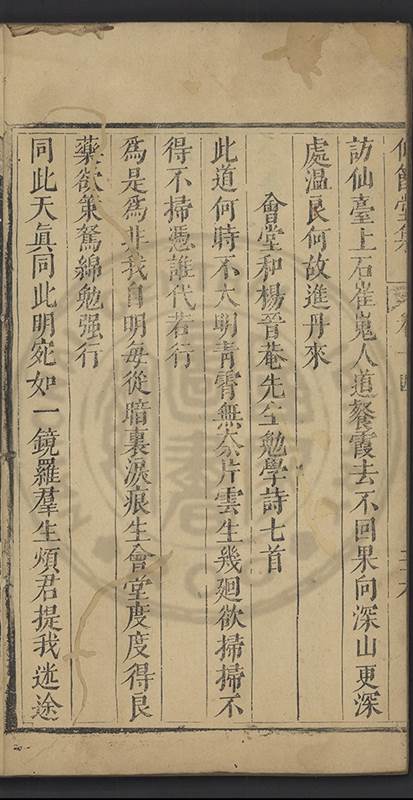 訪仙臺上石崔嵬人道餐霞去不回果向深山更深
處溫良何故進丹來
會堂和楊晉菴先生勉學詩七首
此道何時不大明青霄無奈片雲生幾廻欲掃掃不
得不掃憑誰代若行
為是為非我自明每從暗裏淚痕生會堂度度得良
藥欲策駑綿勉强行
同此天真同此明宛如一鏡羅羣生煩君提我迷途